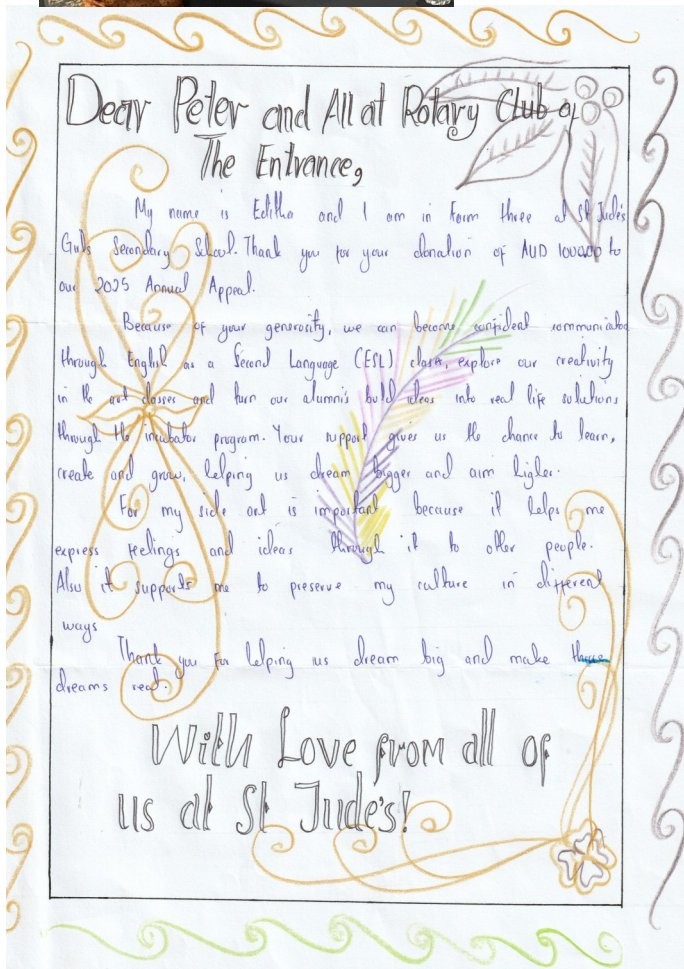 Dear Peter and All at Rotary Club of
The Entrance,
My name is Editha and I am in Form three at St Jude's
Girls Secondary School. Thank you for your donation of AUD to
our 2025 Annual Appeal.
Because of your generosity, we can become confident communicator
through English as a Second Language (ESL) class, explore our creativity
in the art classes and turn our alumni's bold ideas into real life solutions
through the incubator program. Your support gives us the chance to learn,
create and grow, helping us dream bigger and aim higher.
For my side art is important because it helps me
express feelings and ideas through it to other people.
Also it supports me to preserve my culture in different
ways
Thank you for helping us dream big and make
dreams real.
With Love from all of
us at St Jude's!